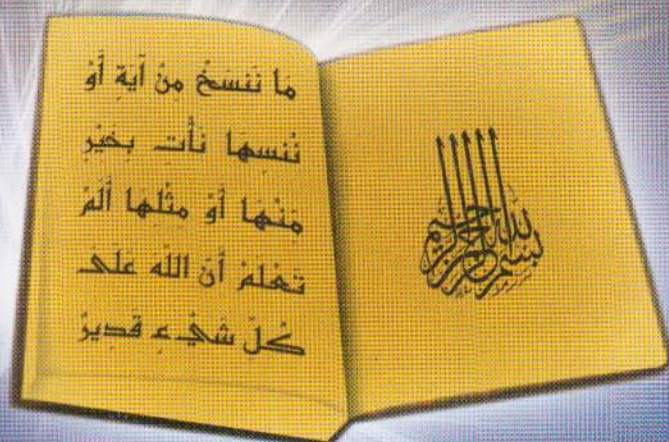 بسم الله الرحمن الرحيم
مَا نَنسَخْ مِنْ آيَةٍ أَوْ
نُنسِهَا نَأْتِ بِخَيْرٍ
مِنْهَا أَوْ مِثْلِهَا أَلَمْ
تَعْلَمْ أَنَّ اللَّهَ عَلَى
كُلِّ شَيْءٍ قَدِيرٌ